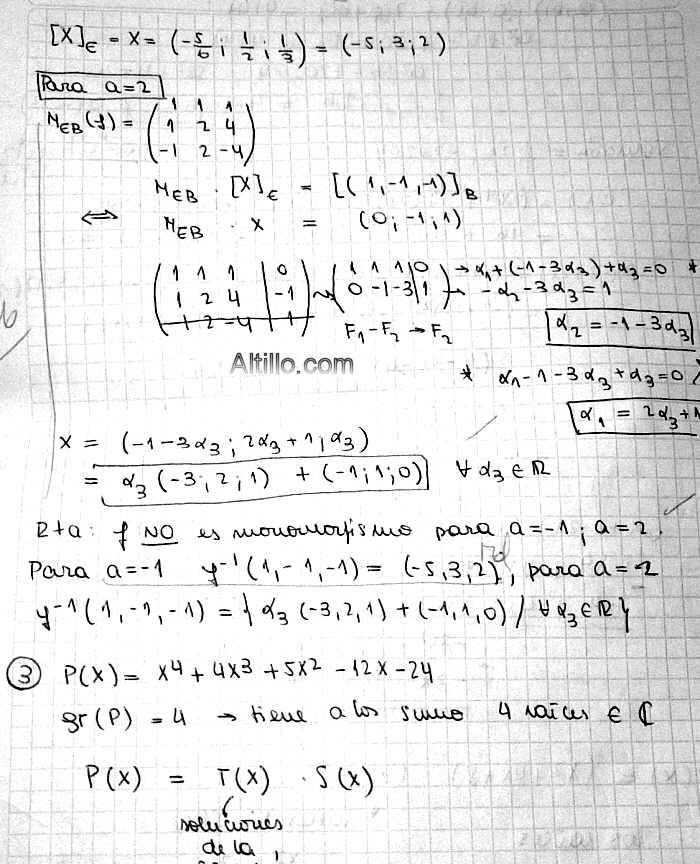 [X]_E = X = (-5/6 ; 1/2 ; 1/3) = (-5; 3; 2)
Para a=2
M_EB(f) = ( 1 1 1
1 2 4
-1 2 -4 )
M_EB · [X]_E = [(1,-1,-1)]_B
⟺ M_EB · X = (0; -1; 1)
( 1 1 1 | 0 ) ~ ( 1 1 1 | 0 ) → α₁+(-1-3α₃)+α₃=0 *
1 2 4 | -1 0 -1 -3 | 1 → -α₂-3α₃=1
2 -4 | 1 F₁-F₂→F₂ α₂ = -1-3α₃
Altillo.com
* α₁-1-3α₃+α₃=0
α₁ = 2α₃+1
X = (-1-3α₃; 2α₃+1, α₃)
= α₃(-3; 2; 1) + (-1; 1; 0) ∀ α₃ ∈ ℝ
Rta: f NO es monomorfismo para a=-1; a=2.
Para a=-1 y⁻¹(1,-1,-1) = (-5,3,2), para a=2
y⁻¹(1,-1,-1) = { α₃(-3,2,1)+(-1,1,0) / ∀ α₃ ∈ ℝ }
3 P(X) = X⁴+4X³+5X²-12X-24
gr(P) = 4 → tiene a lo sumo 4 raíces ∈ ℂ
P(X) = T(X) · S(X)
soluciones
de la